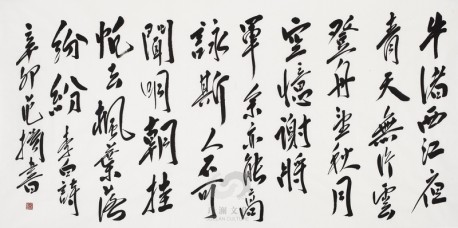 牛渚西江夜
青天無片雲
登舟望秋月
空憶謝將
軍余亦能高
詠斯人不可
聞明朝挂
帆去楓葉落
紛紛李白詩
辛卯 書